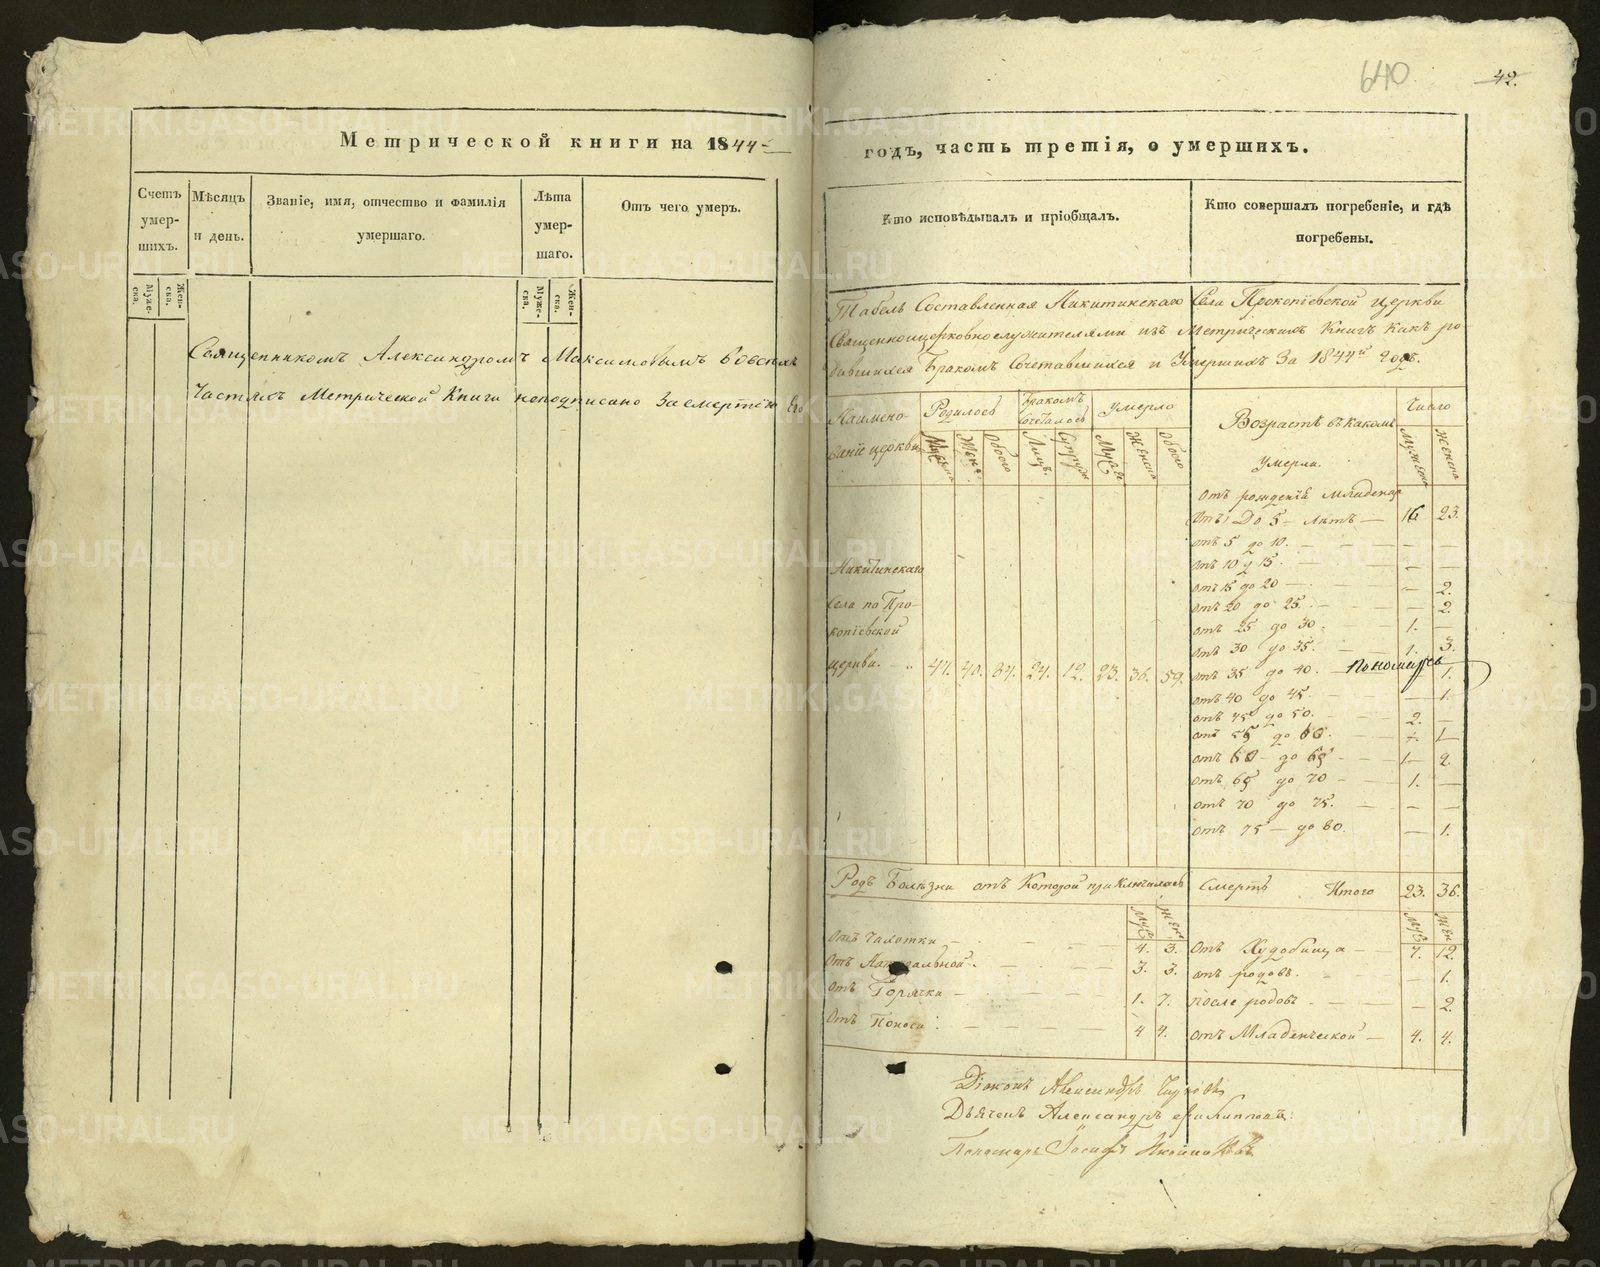 640
42.
Метрической книги на 1844
Счетъ умер-шихъ.
Мѣсяцъ и день.
Званіе, имя, отчество и фамилія умершаго.
Лѣта умер-шаго.
Отъ чего умеръ.
Муже-ска.
Жен-ска.
Муже-ска.
Жен-ска.
Священникомъ Александромъ Максимовымъ во всѣхъ
Частяхъ Метрической Книги неподписано за смертію Его
годъ, часть третія, о умершихъ.
Кто исповѣдывалъ и пріобщалъ.
Кто совершалъ погребеніе, и гдѣ погребены.
Табель Составленная Никитинскаго Села Прокопіевской церкви
Священноцерковнослужителями изъ Метрическихъ Книгъ Какъ ро
дившихся Бракомъ Сочетавшихся и Умершихъ За 1844й годъ.
Наимено-
ваніе церкви
Родилось
Бракомъ
Сочеталось
Умерло
Возрастъ въ какомъ
Умерли.
Число
Мужеска
Женска
Обоего
Лицъ.
Супруж
Муж
Женска
Обоего
Мужеска
Женска
Отъ рожденія Младенца
Отъ 1 До 5 - лѣтъ — 16 23.
отъ 5 до 10. — —
отъ 10 д 15. — —
отъ 15 до 20 — — 2.
отъ 20 до 25. — — 2.
отъ 25 до 30 — 1. —
отъ 30 до 35. — 1. 3.
отъ 35 до 40. — 1.
Пономарь
отъ 40 до 45 — 1.
отъ 45 до 50. — 2. —
отъ 55 до 60. 1—
отъ 60 - до 65 - — 1— 2.
отъ 65 до 70 — 1. —
отъ 70 до 75. — —
отъ 75 — до 80. — 1.
Никитинскаго
Села по Про-
копіевской
церкви. 47. 40. 87. 24. 12. 23. 36. 59.
Родъ Болѣзни отъ Которой приключилась Смерть Итого 23. 36.
Муж
Жен
Муж
Жен
Отъ Чахотки — 4. 3.
Отъ Натуральной — 3. 3.
Отъ Горячки — 1. 7.
Отъ Поноса — 4 4.
Отъ Худобища — 7. 12.
отъ родовъ. — 1.
после родовъ — 2.
отъ Младенческой — 4. 4.
Діаконъ Александръ
Дьячекъ Александръ Филипповъ.
Пономарь Іосифъ
METRIKI.GASO-URAL.RU